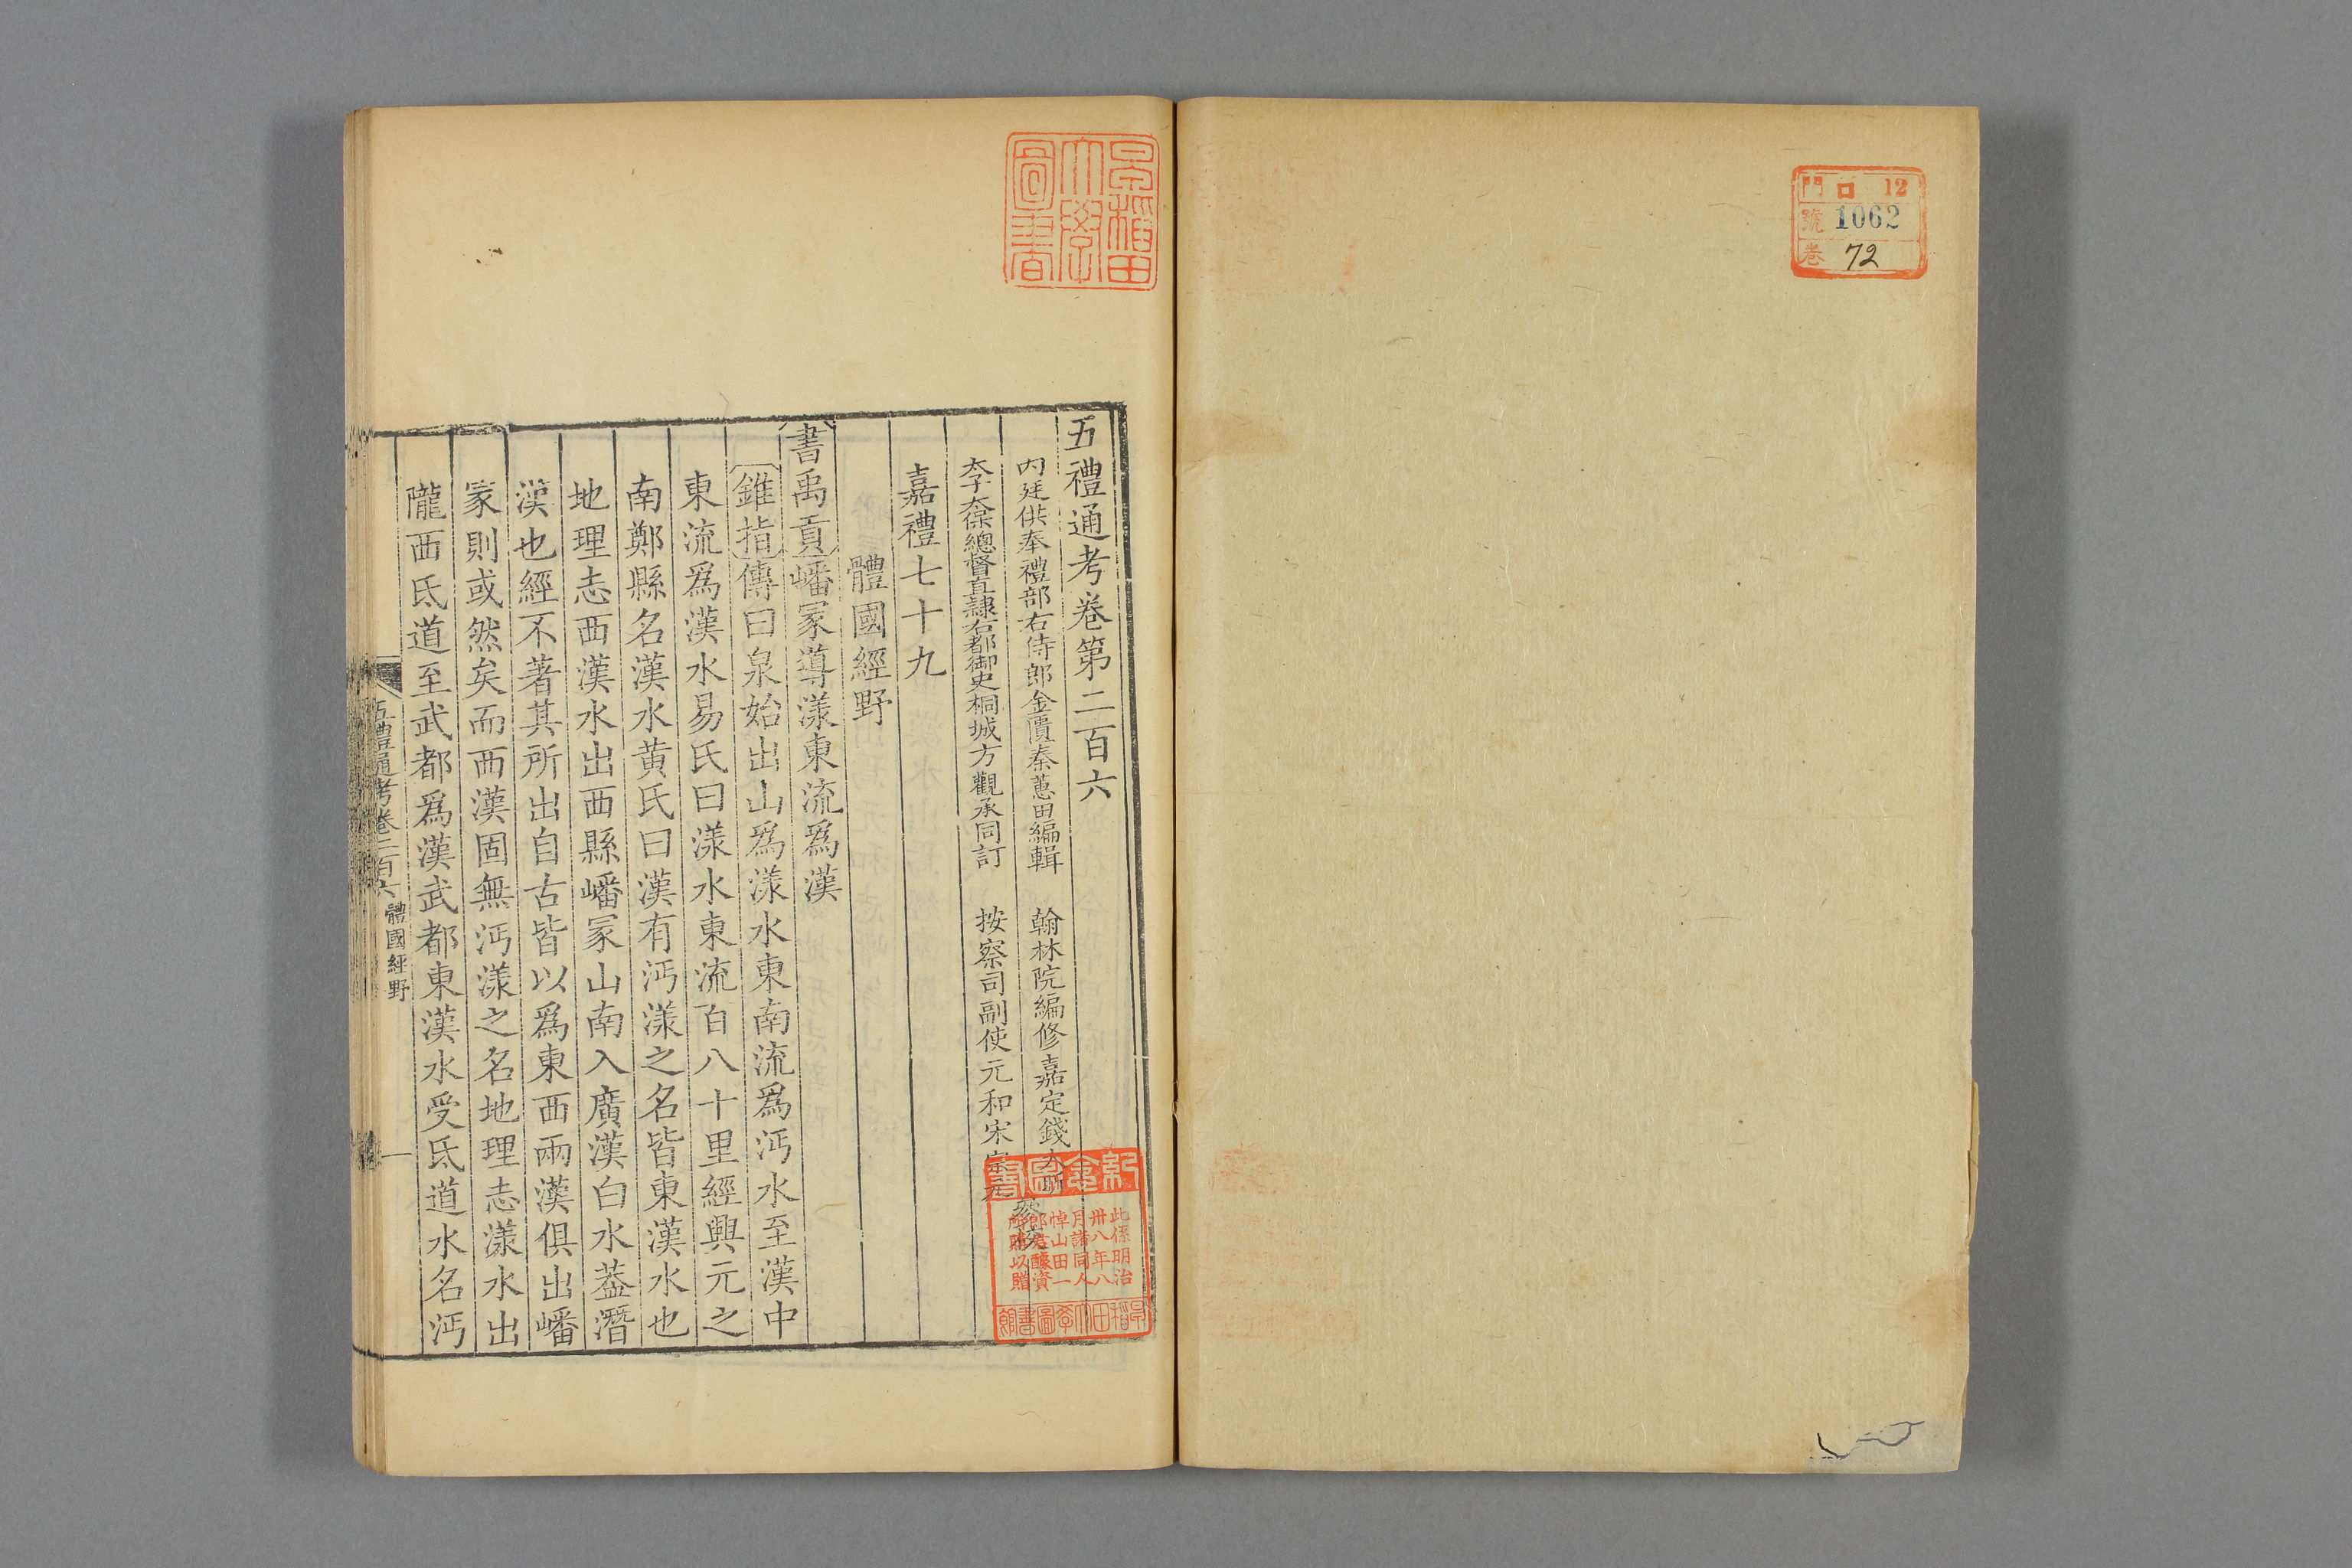 門 ロ 12
號 1062
卷 72
早稻田大學圖書
五禮通考卷第二百六
內廷供奉禮部右侍郎金匱秦蕙田編輯 翰林院編修嘉定錢大昕
太子太保總督直隷右都御史桐城方觀承同訂 按察司副使元和宋宗元
參校
嘉禮七十九
體國經野
書禹貢嶓冢導漾東流爲漢
錐指傳曰泉始出山爲漾水東南流爲沔水至漢中
東流爲漢水易氏曰漾水東流百八十里經興元之
南鄭縣名漢水黃氏曰漢有沔漾之名皆東漢水也
地理志西漢水出西縣嶓冢山南入廣漢白水葢潛
漢也經不著其所出自古皆以爲東西兩漢俱出嶓
冢則或然矣而西漢固無沔漾之名地理志漾水出
隴西氐道至武都爲漢武都東漢水受氐道水名沔
五禮通考卷二百六 體國經野 一
紀念圖書
此係明治
卅八年八
月諸同人
悼山田一
郎君醵資
所購以贈
早稻田大學圖書館